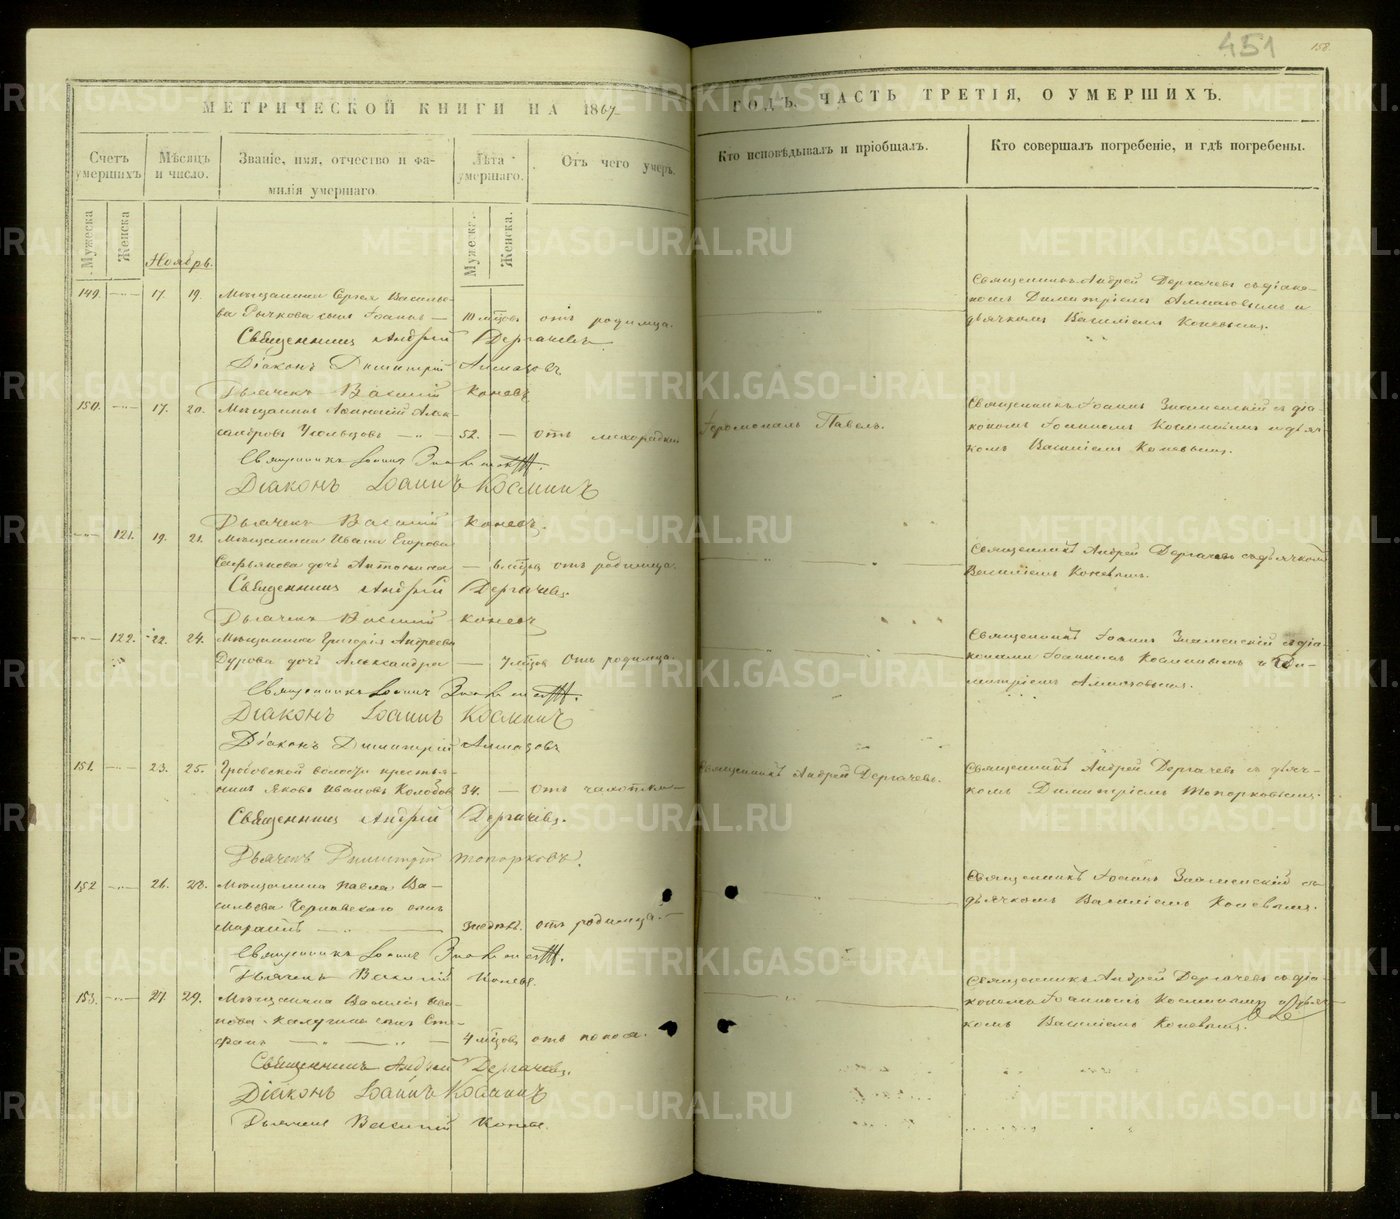 451
158
МЕТРИЧЕСКОЙ КНИГИ НА 1867
ГОДЪ, ЧАСТЬ ТРЕТІЯ, О УМЕРШИХЪ.
Счетъ умершихъ
Мужеска
Женска
Мѣсяцъ и число.
Званіе, имя, отчество и фа-
милія умершаго.
Лѣта умершаго.
Мужеска.
Женска.
Отъ чего умеръ.
Кто исповѣдывалъ и пріобщалъ.
Кто совершалъ погребеніе, и гдѣ погребены.
Ноябрь.
149. 17. 19. Мѣщанина Сергея Василье-
ва Рычкова сынъ Іоаннъ 10 мѣсцовъ отъ родимца.
Священникъ Андрей Дергачевъ съ діако-
номъ Димитріемъ Алмазовымъ и
дьячкомъ Василіемъ Коневымъ.
Священникъ Андрей Дергачевъ.
Діаконъ Димитрій Алмазовъ.
Дьячекъ Василій Коневъ.
150. 17. 20. Мѣщанинъ
52. отъ лихорадки
Іеромонахъ Павелъ.
Священникъ Іоаннъ Знаменскій съ діа-
кономъ Іоанномъ Косминымъ и дьяч-
комъ Василіемъ Коневымъ.
Священникъ Іоаннъ Знаменскій.
Діаконъ Іоаннъ Косминъ
Дьячекъ Василій Коневъ.
121. 19. 21. Мѣщанина Ивана Егорова
дочь Антонина отъ родимца.
Священникъ Андрей Дергачевъ съ дьячкомъ
Василіемъ Коневымъ.
Священникъ Андрей Дергачевъ.
Дьячекъ Василій Коневъ
122. 22. 24. Мѣщанина Григорія Андреева
Дурова дочь Александра 7 мѣсцовъ отъ родимца.
Священникъ Іоаннъ Знаменскій съ діа-
конами Іоанномъ Косминымъ и Ди-
митріемъ Алмазовымъ.
Священникъ Іоаннъ Знаменскій.
Діаконъ Іоаннъ Косминъ
Діаконъ Димитрій Алмазовъ
151. 23. 25. Гробовской волости крестья-
нинъ Яковъ Ивановъ Колобов 34. отъ чахотки
Священникъ Андрей Дергачевъ.
Священникъ Андрей Дергачевъ съ дьяч-
комъ Димитріемъ Топорковымъ.
Священникъ Андрей Дергачевъ.
Дьячекъ Димитрій Топорковъ.
152 26. 28. Мѣщанина Павла Ва-
сильева Чернавскаго сынъ
отъ родимца.
Священникъ Іоаннъ Знаменскій съ
дьячкомъ Василіемъ Коневымъ.
Священникъ Іоаннъ Знаменскій.
Дьячекъ Василій Коневъ.
153. 27. 29. Мѣщанина Василія Ива-
нова Калугина сынъ Сте-
фанъ 4 мѣсцовъ отъ поноса.
Священникъ Андрей Дергачевъ съ діа-
кономъ Іоанномъ Косминымъ и дьяч-
комъ Василіемъ Коневымъ.
Священникъ Андрей Дергачевъ.
Діаконъ Іоаннъ Косминъ
Дьячекъ Василій Коневъ.
METRIKI.GASO-URAL.RU